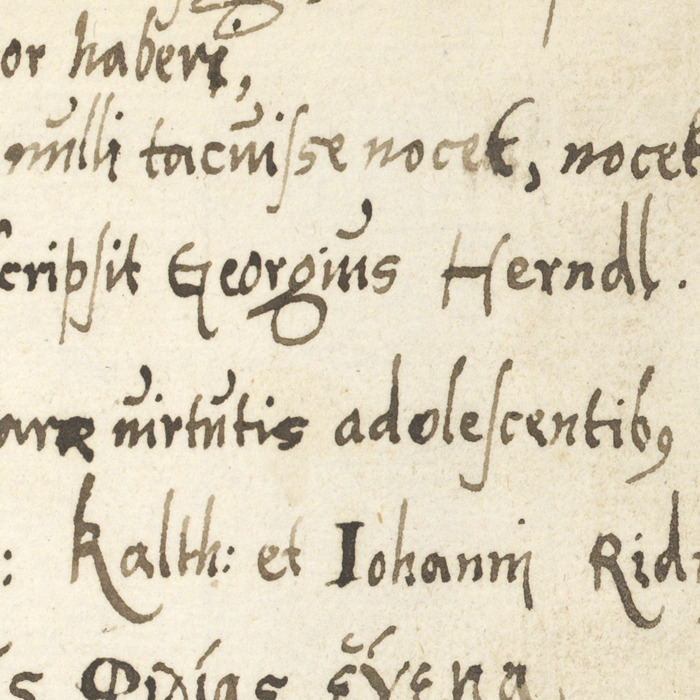 or haberi,
nulli tacuisse nocet, nocet
scripsit Georgius Herndl.
aræ uirtutis adolescentibꝫ
: Kalth: et Iohannj Rid
ς Φιλίας ἕνεκα